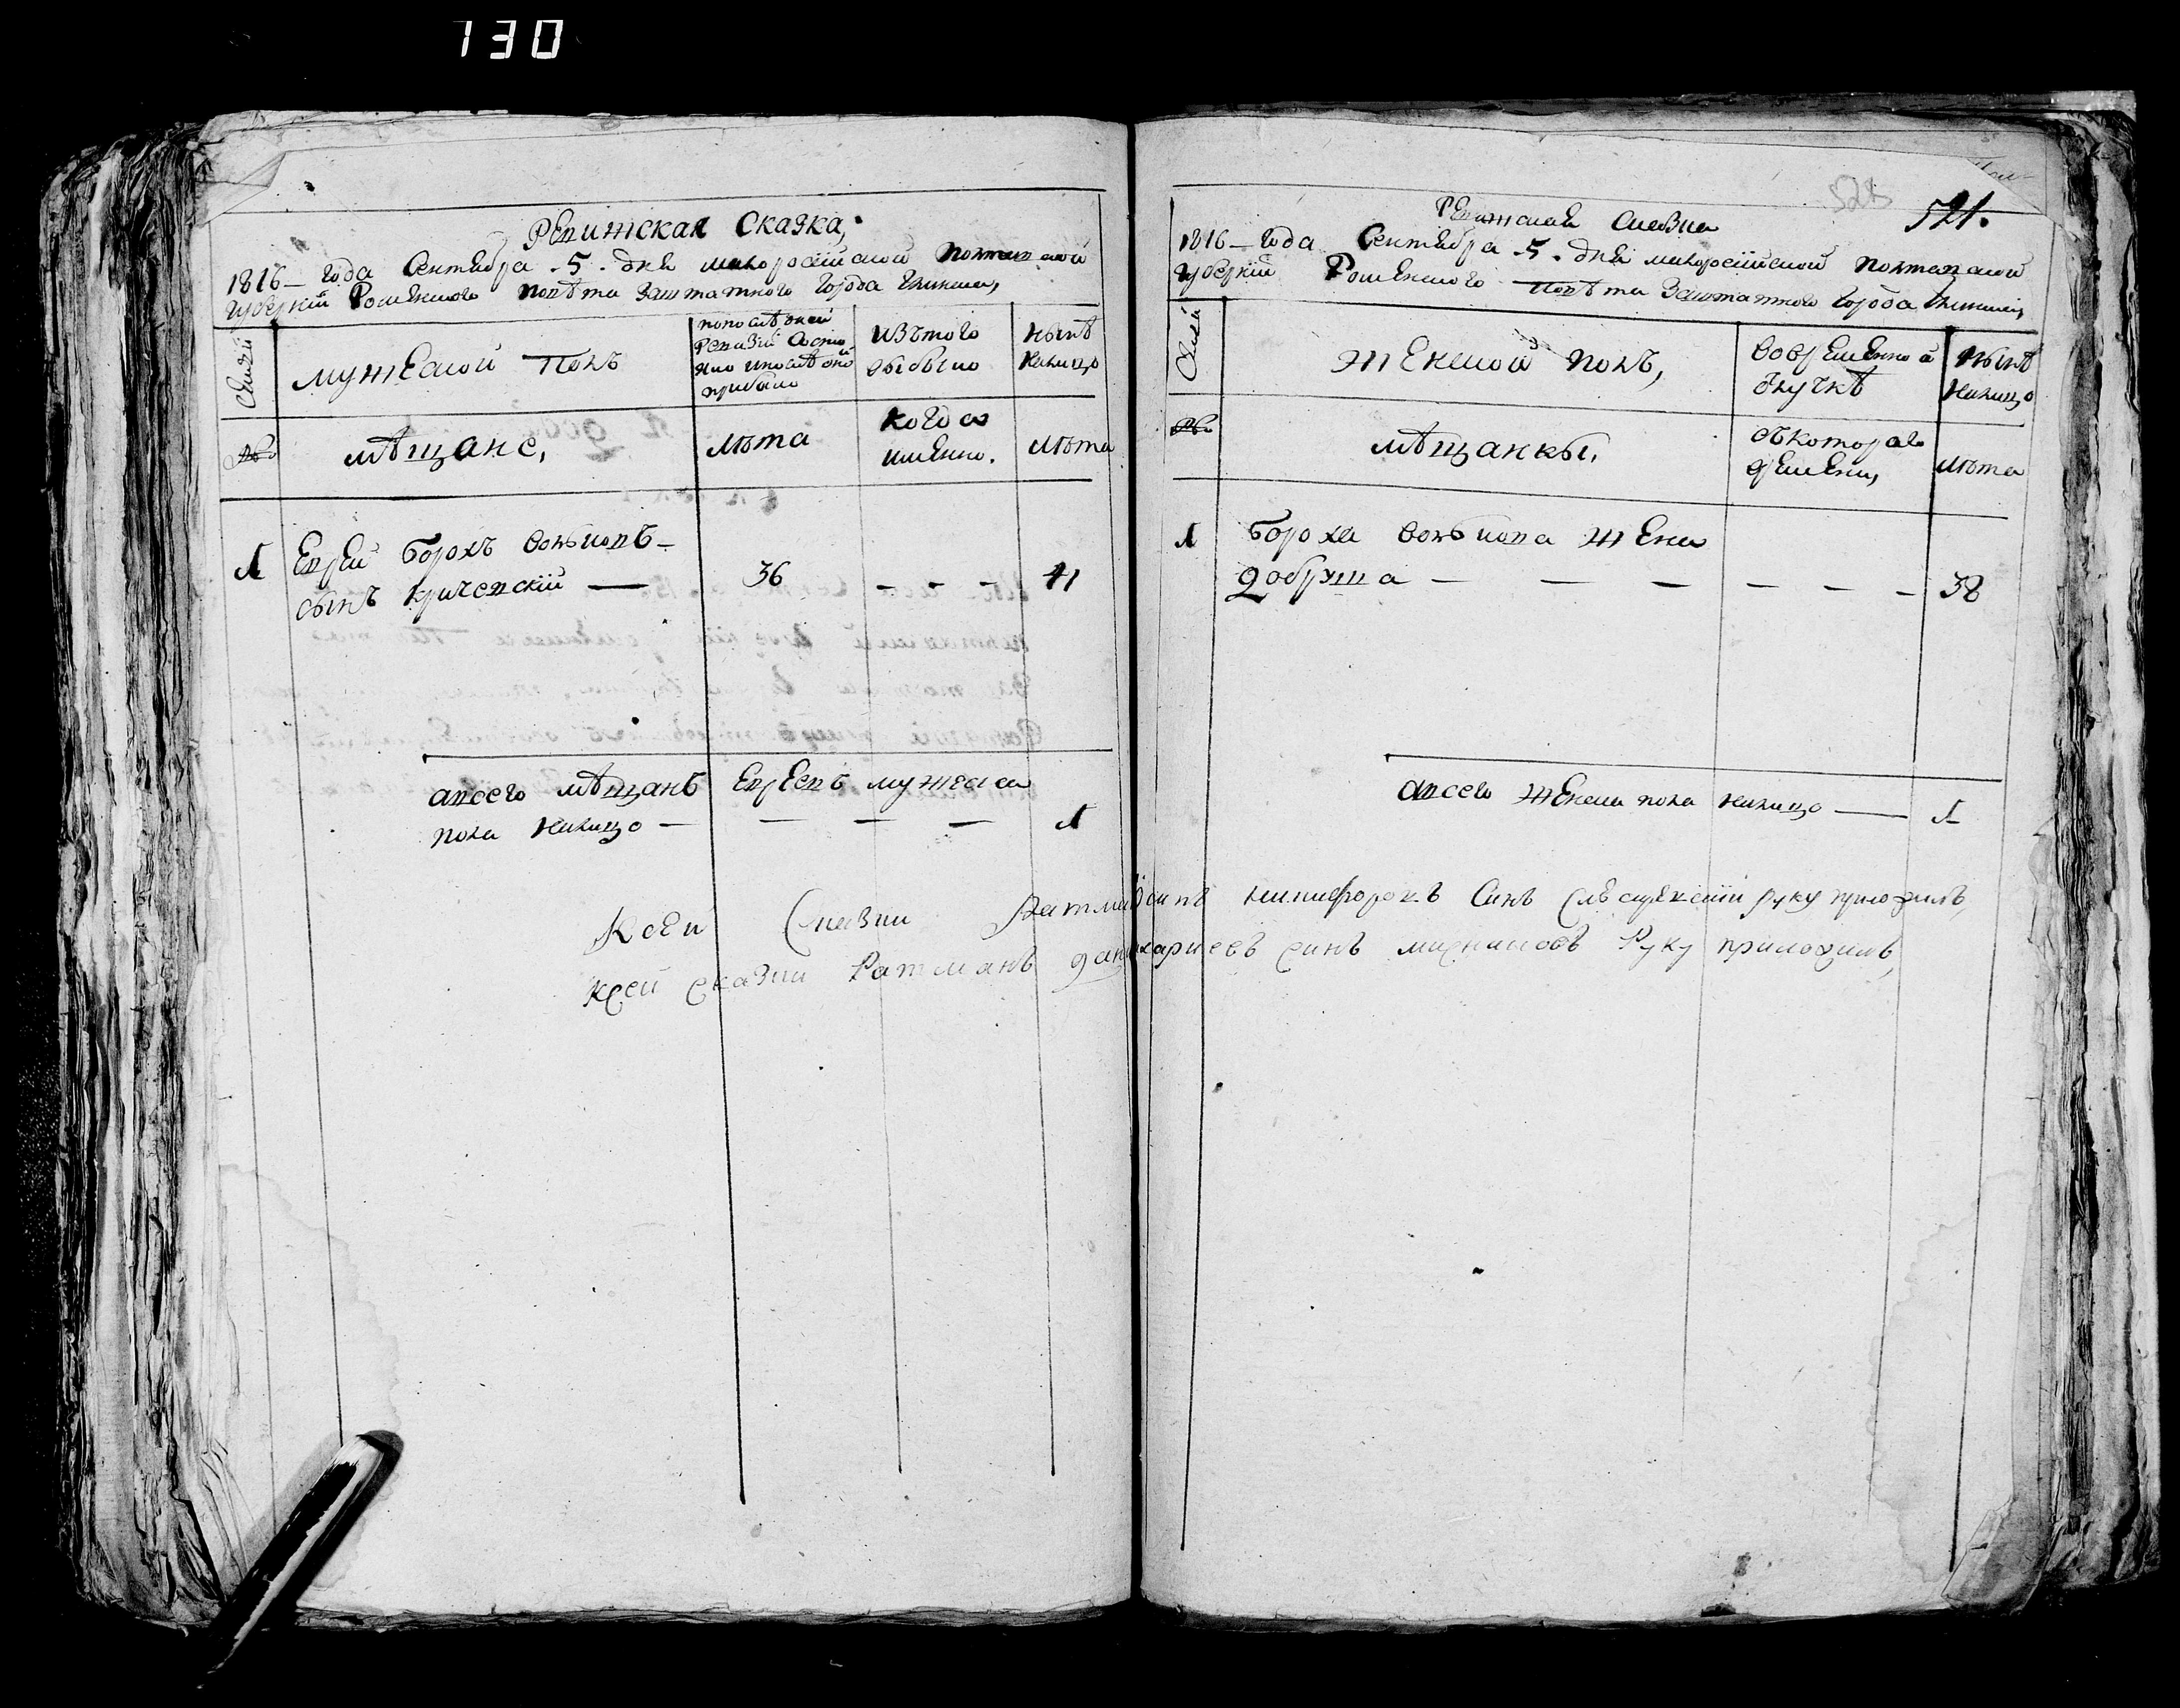 130
Ревижская Сказка,
1816 — года Сентября .5. дня малоросійской Полтавской
губерніи Роменского повѣта Заштатного города Глинска,
Семьи
мужеской полъ
по последней
ревизіи состо
яло и после оной
прибыло
изъ того
выбыло
ныне
налицо
№
мѣщане,
лѣта
когда
именно.
лѣта
1
Еврей Борохъ Вольковъ
сынъ Кричевскій —
36
— — —
41
а всего мѣщанъ евреевъ мужеска
пола налицо — — — —
1
521.
Ревижская Сказка
1816 — года Сентября .5. дня малоросійской Полтавской
губерніи Роменского повѣта Заштатного города Глинска,
Семьи
женской полъ,
во временной
отлучкѣ
ныне
налицо
№
мѣщанки,
съ которого
времени,
лѣта
1
Бороха Волькова жена
Добруша — — — — — —
38
а всего женска пола налицо —
1
К сей Сказки Ратманъ Никифоровъ Синъ руку приложилъ,
К сей сказки Ратманъ синъ руку приложилъ,